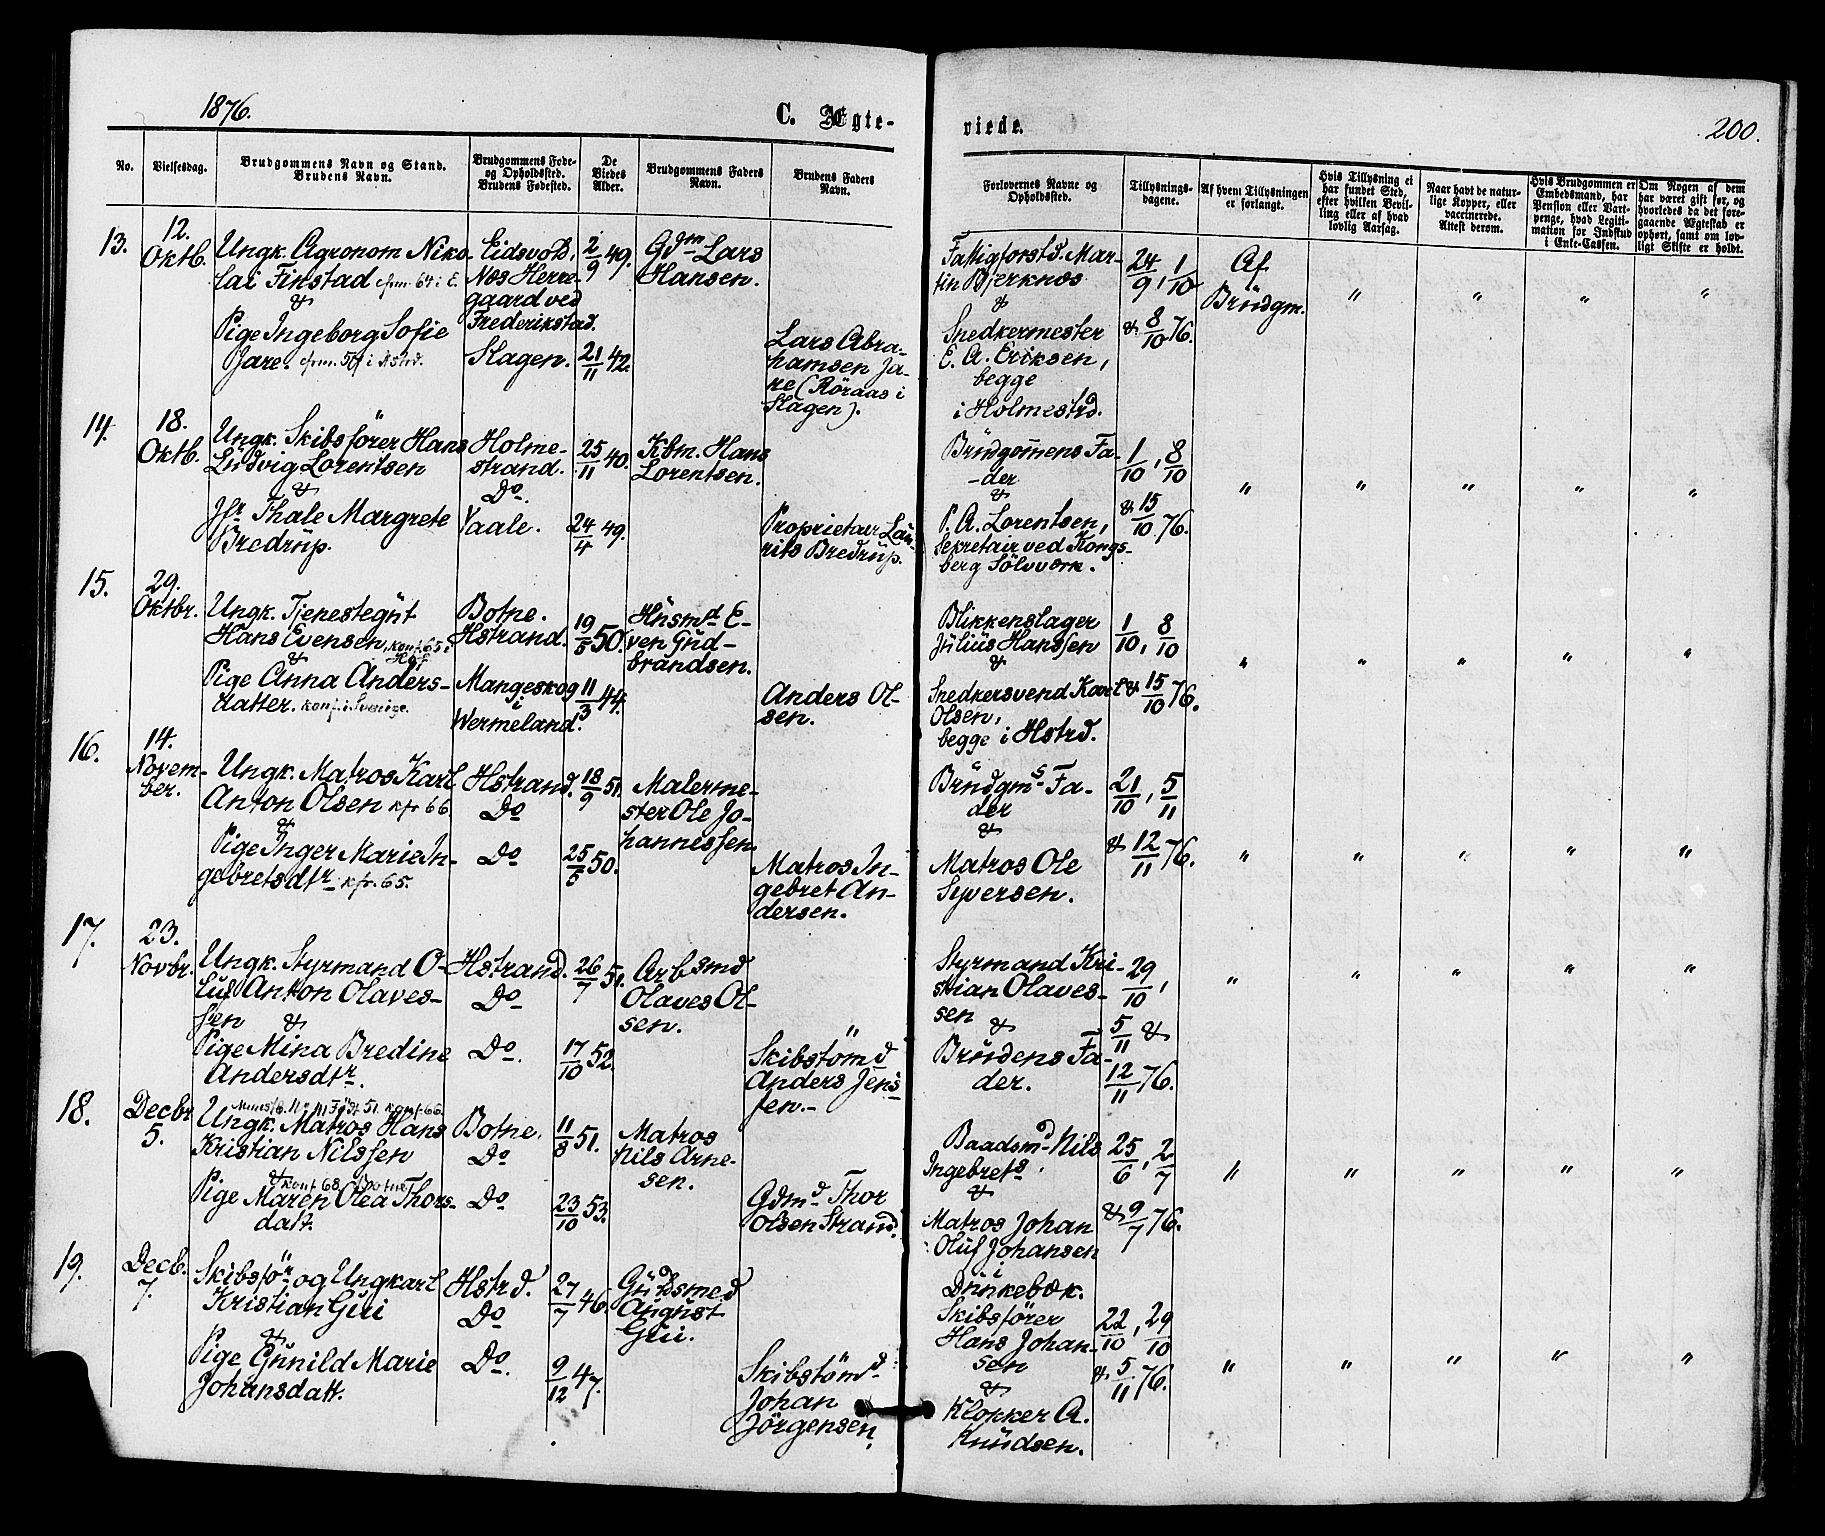 1876.
C. Ægte-
viede.
200.
No.
Vielsesdag.
Brudgommens Navn og Stand.
Brudens Navn.
Brudgommens Føde-
og Opholdssted.
Brudens Fødested.
De
Viedes
Alder.
Brudgommens Faders
Navn.
Brudens Faders
Navn.
Forlovernes Navne og
Opholdssted.
Tillysnings-
dagene.
Af hvem Tillysningen
er forlangt.
Hvis Tillysning ei
har fundet Sted,
efter hvilken Bevil-
ling eller af hvad
lovlig Aarsag.
Naar havt de natur-
lige Kopper, eller
vaccinerede.
Attest derom.
Hvis Brudgommen er
Embedsmand, har
Pension eller Vart-
penge, hvad Legiti-
mation for Indskud
i Enke-Cassen.
Om Nogen af dem
har været gift før, og
hvorledes da det føre-
gaaende Ægteskab er
ophørt, samt om lov-
ligt Skifte er holdt.
13.
12.
Oktb.
Ungk. Agronom Niko-
lai Finstad cfrm. 64 i E.
&
Pige Ingeborg Sofie
Jare. cfrm. 57 i Åstrd.
Eidsvold,
Næs Herre-
gaard ved
Frederikstad.
Slagen.
2/9 49.
21/11 42.
Gdm Lars
Hansen.
Lars Abra-
hamsen Ja-
re (Röraas i
Slagen).
Fattigforstd. Mar-
tin Bjerknæs
&
Snedkermester
E. A. Eriksen,
begge
i Holmestrd.
24/9, 1/10
& 8/10 76.
Af
Brüdgm.
" " " "
14.
18.
Oktb.
Ungk. Skibsförer Hans
Lüdvig Lorentsen
&
Jfr Thale Margrete
Bredrup.
Holme-
strand.
Do.
Vaale.
25/11 40.
24/4 49.
Kbm. Hans
Lorentsen.
Proprietær Lau-
rits Bredrup.
Brüdgomens Fa-
der
&
P. A. Lorentsen,
Sekretair ved Kongs-
berg Sölvværk.
1/10, 8/10
& 15/10 76.
" " " " "
15.
29.
Oktbr.
Ungk. Tjenestegüt
Hans Evensen, konf. 65 i
Hof
&
Pige Anna Anders-
datter. konf. i Sverige.
Botne.
Hstrand.
Mangeskog
i
Wermeland.
19/5 50.
11/3 44.
Hüsmd E-
ven Gud-
brandsen.
Anders Ol-
sen.
Blikkenslager
Jülius Hanssen
&
Snedkersvend Karl
Olsen,
begge i Hstrd.
1/10, 8/10
& 15/10 76.
" " " " "
16.
14.
Novem-
ber.
Ungk. Matros Karl
Anton Olsen kfr 66.
&
Pige Inger Marie In-
gebretsdtr kfr. 65.
Hstrand.
Do
Do
18/9 51.
25/5 50.
Malerme-
ster Ole Jo-
hannessen.
Matros In-
gebret An-
dersen.
Brüdgms Fa-
der
&
Matros Ole
Syversen.
21/10, 5/11
& 12/11 76.
" " " " "
17.
23.
Novbr.
Ungk. Styrmand O-
luf Anton Olaves-
sen &
Pige Mina Bredine
Andersdtr.
Hstrand.
Do
Do.
26/7 51.
17/10 52.
Arbsmd
Olaves Ol-
sen.
Skibstömd
Anders Jens-
sen.-
Styrmand Kri-
stian Olaves-
sen &
Brüdens Fa-
der.
29/10,
5/11 &
12/11 76.
" " " " "
18.
Decbr
5.
Ungk. Matros Hans
Kristian Nilssen
& konf 68. Botne
Pige Maren Olea Thors-
datt.
Botne.
Do
Do
11/8 51.
23/10 53.
Matros
Nils Arne-
sen.
Gdmd Thor
Olsen Strand.
Baadsmd Nils
Ingebrets.
&
Matros Johan
Oluf Johansen
i
Dünkebæk.
25/6, 2/7
& 9/7 76.
" " " " "
19.
Decb.
7.
Skibsför og Ungkarl
Kristian Gui
&
Pige Günild Marie
Johansdatt.
Hstrd.
Do
Do.
27/7 46.
9/12 47.
Güldsmed
August
Gui.
Skibstömd
Johan
Jörgensen.
Skibsförer
Hans Johan-
sen
&
Klokker A.
Knüdsen.
22/10, 29/10
& 5/11 76.
" " " " "